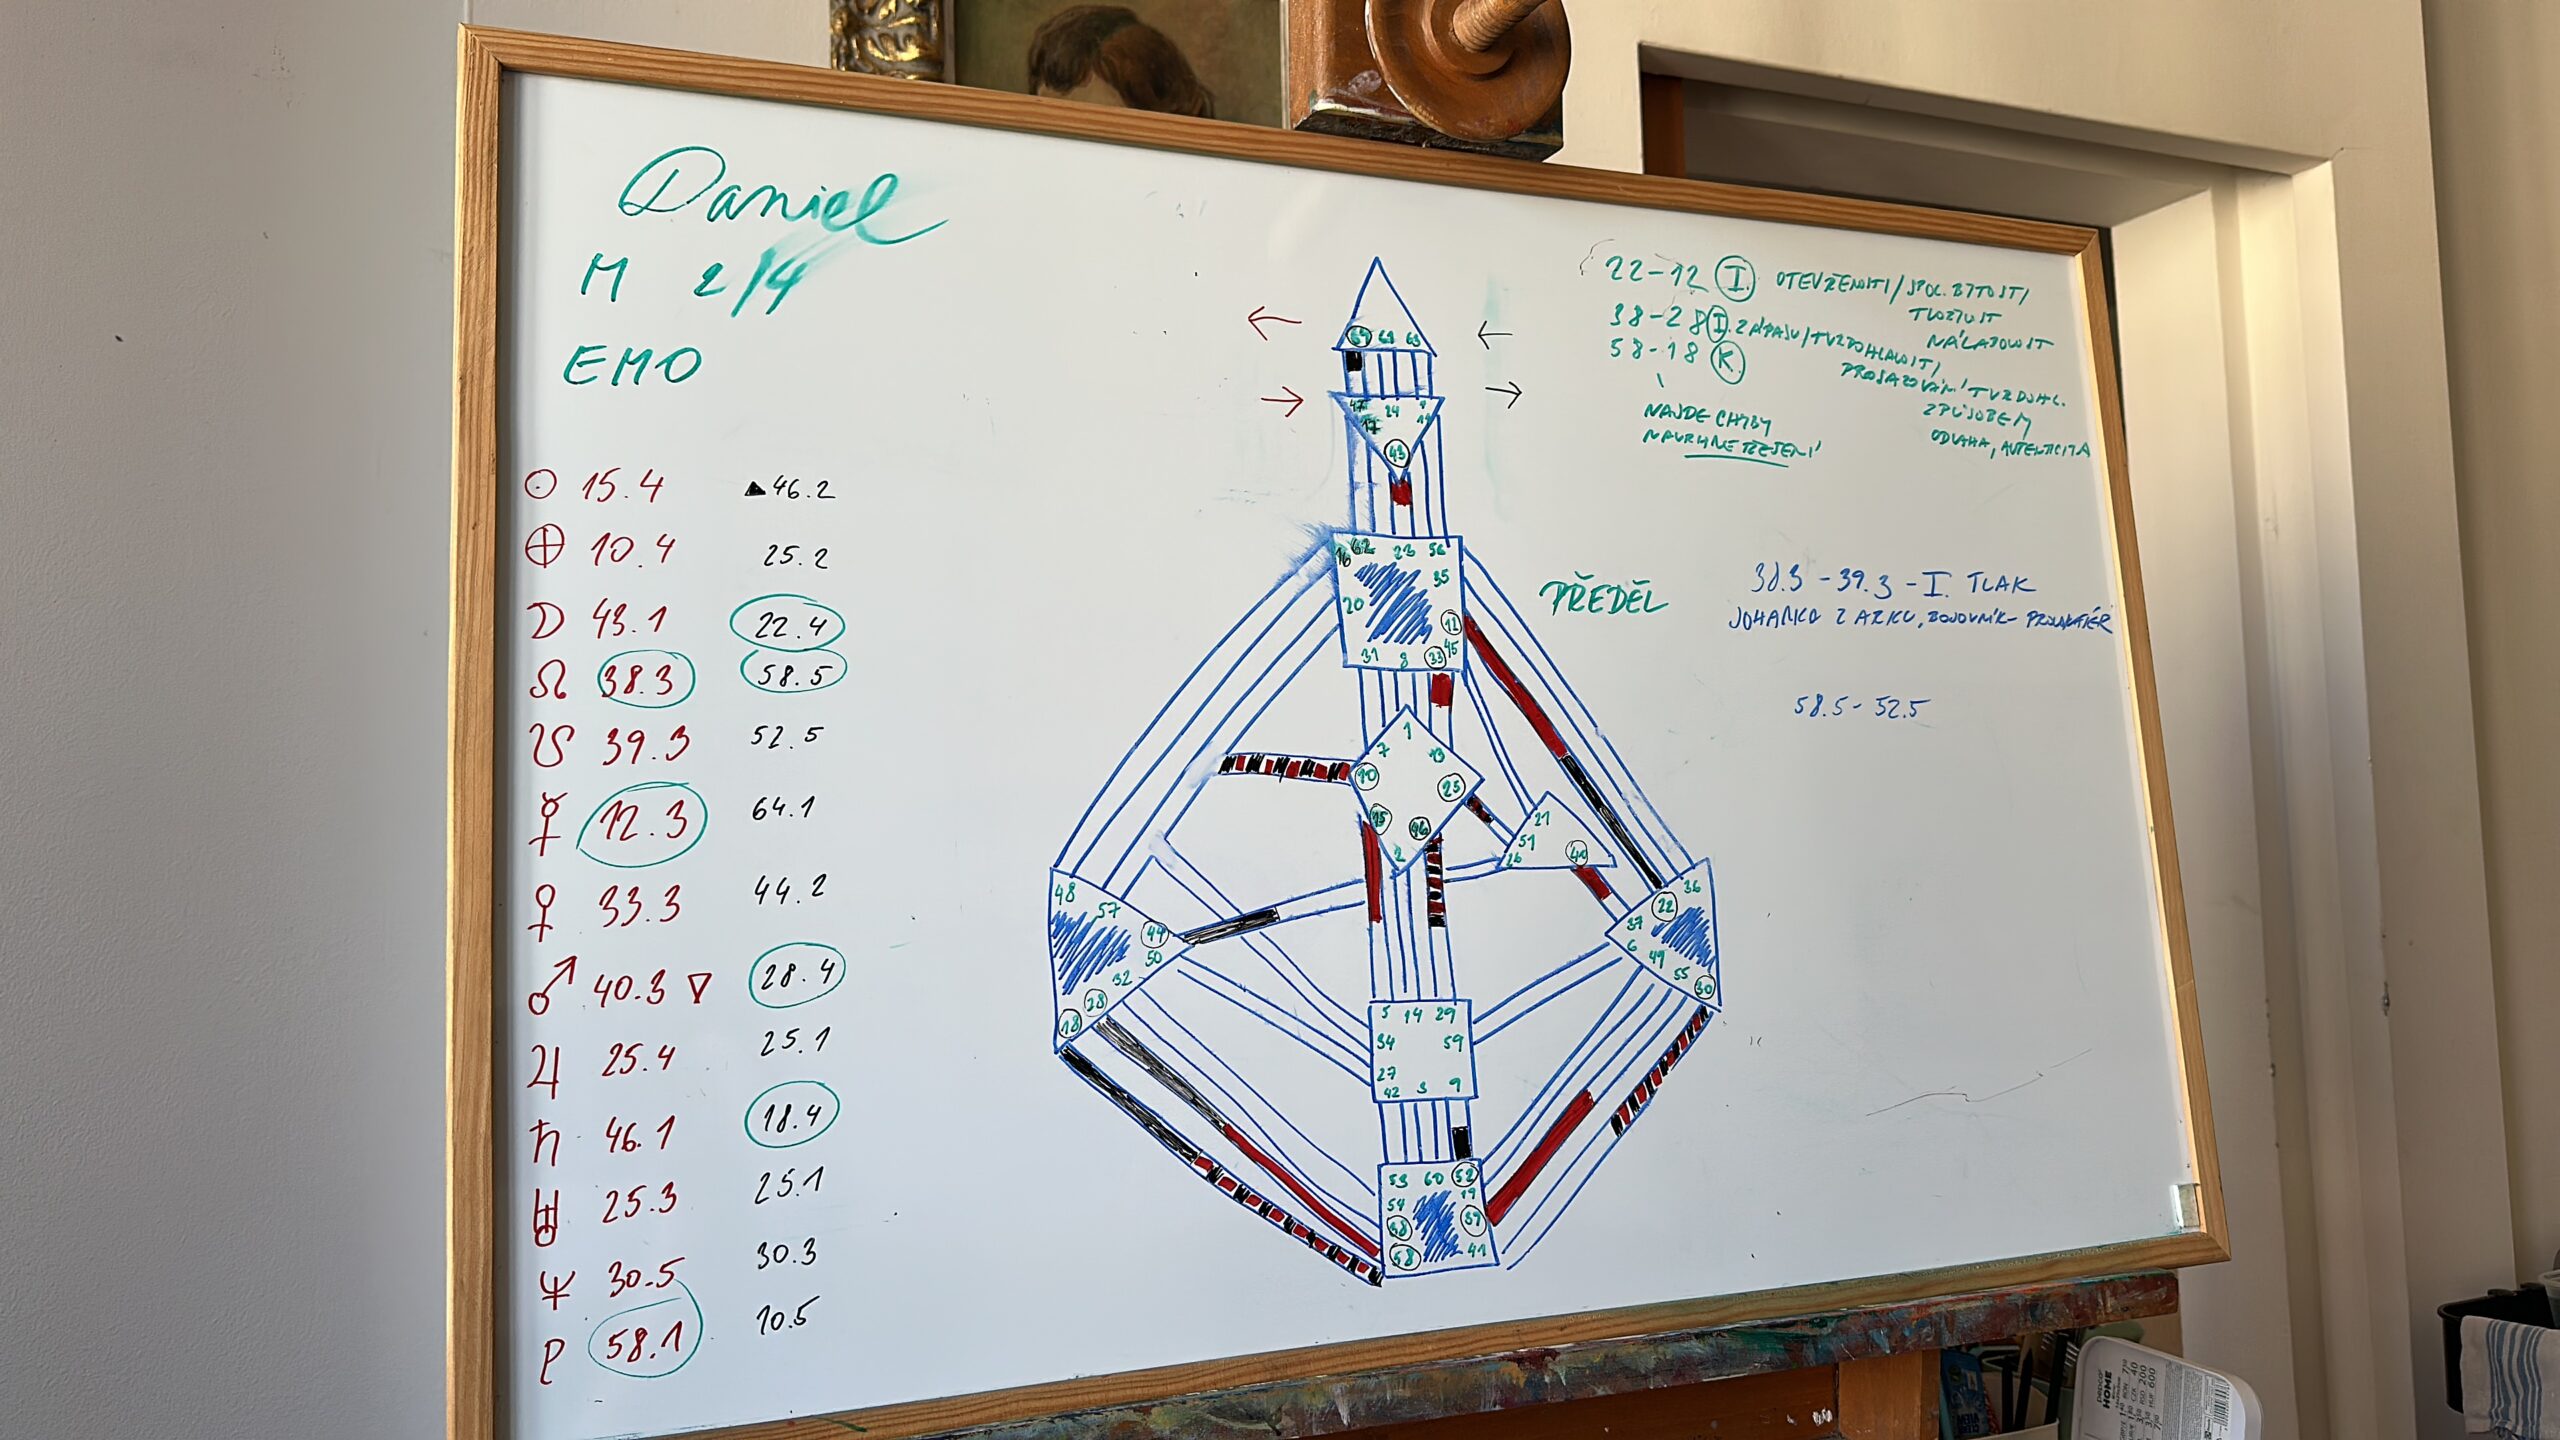 Daniel
M 2/4
EMO
☉ 15.4 ▲46.2
⊕ 10.4 25.2
☽ 43.1 22.4
☊ 38.3 58.5
☋ 39.3 52.5
☿ 12.3 64.1
♀ 33.3 44.2
♂ 40.3 ▽ 28.4
♃ 25.4 25.1
♄ 46.1 18.4
♅ 25.3 25.1
♆ 30.5 30.3
P 58.1 10.5
← ←
64 61 63
→ →
47 24 4
17 11
43
16 62 23 56
35
20
12
45
31 8 33
1
7 13
10 25
15 46
2
21
51
26 40
48
57
44
50
32
28
18
36
22
37
6
49
55
30
5 14 29
34 59
27
42 3 9
53 60 52
54 19
38 39
58 41
22-12 I. OTEVŘENOSTI/SPOL. BYTOSTI/
TVOŘIVOST
NÁLADOVOST
38-28 I. ZÁPASU/TVRDOHLAVOSTI/
PROSAZOVÁNÍ TVRDOHL.
ZPŮSOBEM
ODVAHA, AUTENTICITA
58-18 K.
NAJDE CHYBY
NAVRHNE ŘEŠENÍ
PŘEDĚL
38.3 - 39.3 - I. TLAK
JOHANKA Z ARKU, BOJOVNÍK-
58.5 - 52.5